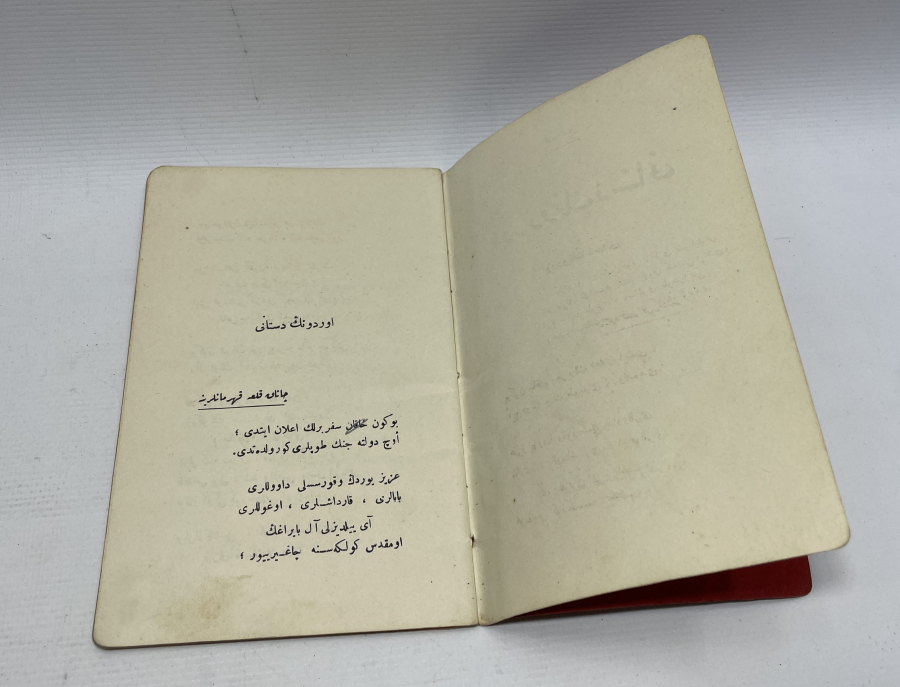 اوردونڭ دستانى
چناق قلعه قهرمانلرينه
بوكون خاقان سفربرلك اعلان ايتدى ؛
اوچ دولته جنك طوپلرى كورولده‌تدى.
عزيز يوردڭ وقورسسلى داووللرى
بابالرى ، قارداشلرى ، اوغوللرى
آى ييلديزلى آل بايراغڭ
اومقدس كولكه‌سنه چاغيرييور ؛